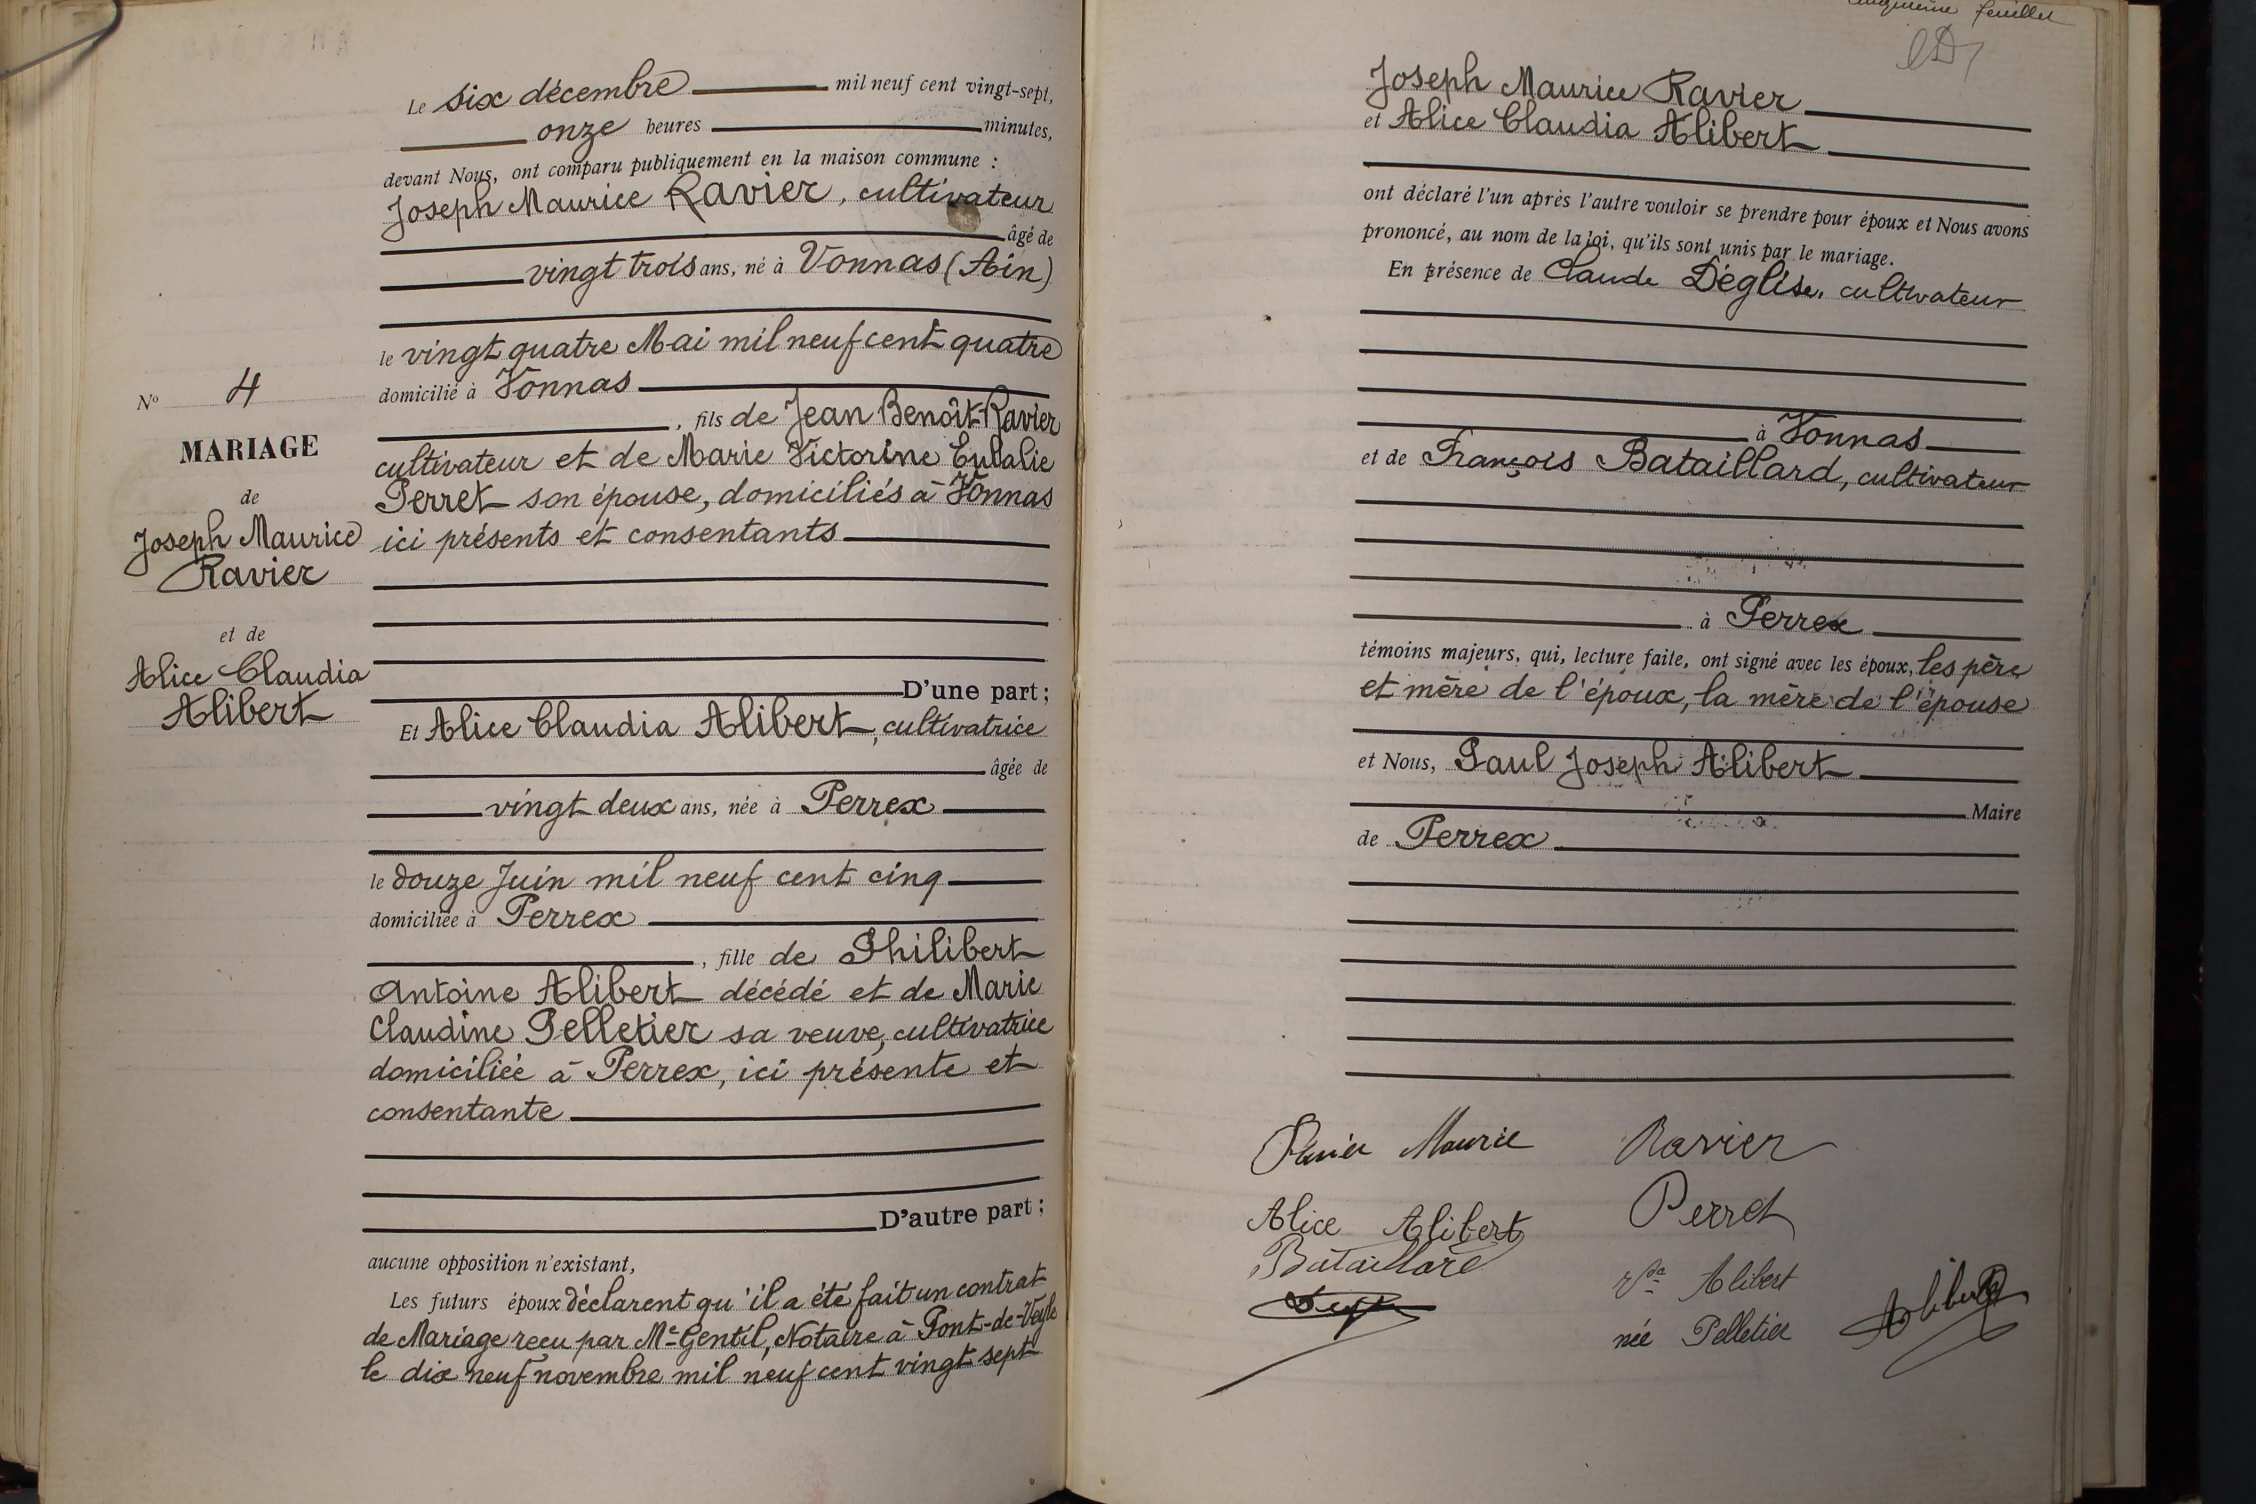 Le six décembre mil neuf cent vingt-sept,
onze heures minutes,
devant Nous, ont comparu publiquement en la maison commune :
Joseph Maurice Ravier, cultivateur
âgé de
vingt trois ans, né à Vonnas (Ain)
le vingt quatre Mai mil neuf cent quatre
domicilié à Vonnas
, fils de Jean Benoît Ravier
cultivateur et de Marie Victorine Eulalie
Perret son épouse, domiciliés à Vonnas
ici présents et consentants
D'une part ;
N° 4
MARIAGE
de
Joseph Maurice
Ravier
et de
Alice Claudia
Alibert
Et Alice Claudia Alibert, cultivatrice
âgée de
vingt deux ans, née à Perrex
le douze Juin mil neuf cent cinq
domiciliée à Perrex
, fille de Philibert
Antoine Alibert décédé et de Marie
Claudine Pelletier sa veuve, cultivatrice
domiciliée à Perrex, ici présente et
consentante
D'autre part ;
aucune opposition n'existant,
Les futurs époux déclarent qu'il a été fait un contrat
de Mariage reçu par Me Gentil, Notaire à Pont-de-Veyle
le dix neuf novembre mil neuf cent vingt sept
feuillet
Joseph Maurice Ravier
et Alice Claudia Alibert
ont déclaré l'un après l'autre vouloir se prendre pour époux et Nous avons
prononcé, au nom de la loi, qu'ils sont unis par le mariage.
En présence de Claude Déglise, cultivateur
à Vonnas
et de François Bataillard, cultivateur
à Perrex
témoins majeurs, qui, lecture faite, ont signé avec les époux, les père
et mère de l'époux, la mère de l'épouse
et Nous, Paul Joseph Alibert
Maire
de Perrex
Ravier Maurice
Ravier
Alice Alibert
Perret
Bataillard
Vde Alibert
née Pelletier
Alibert